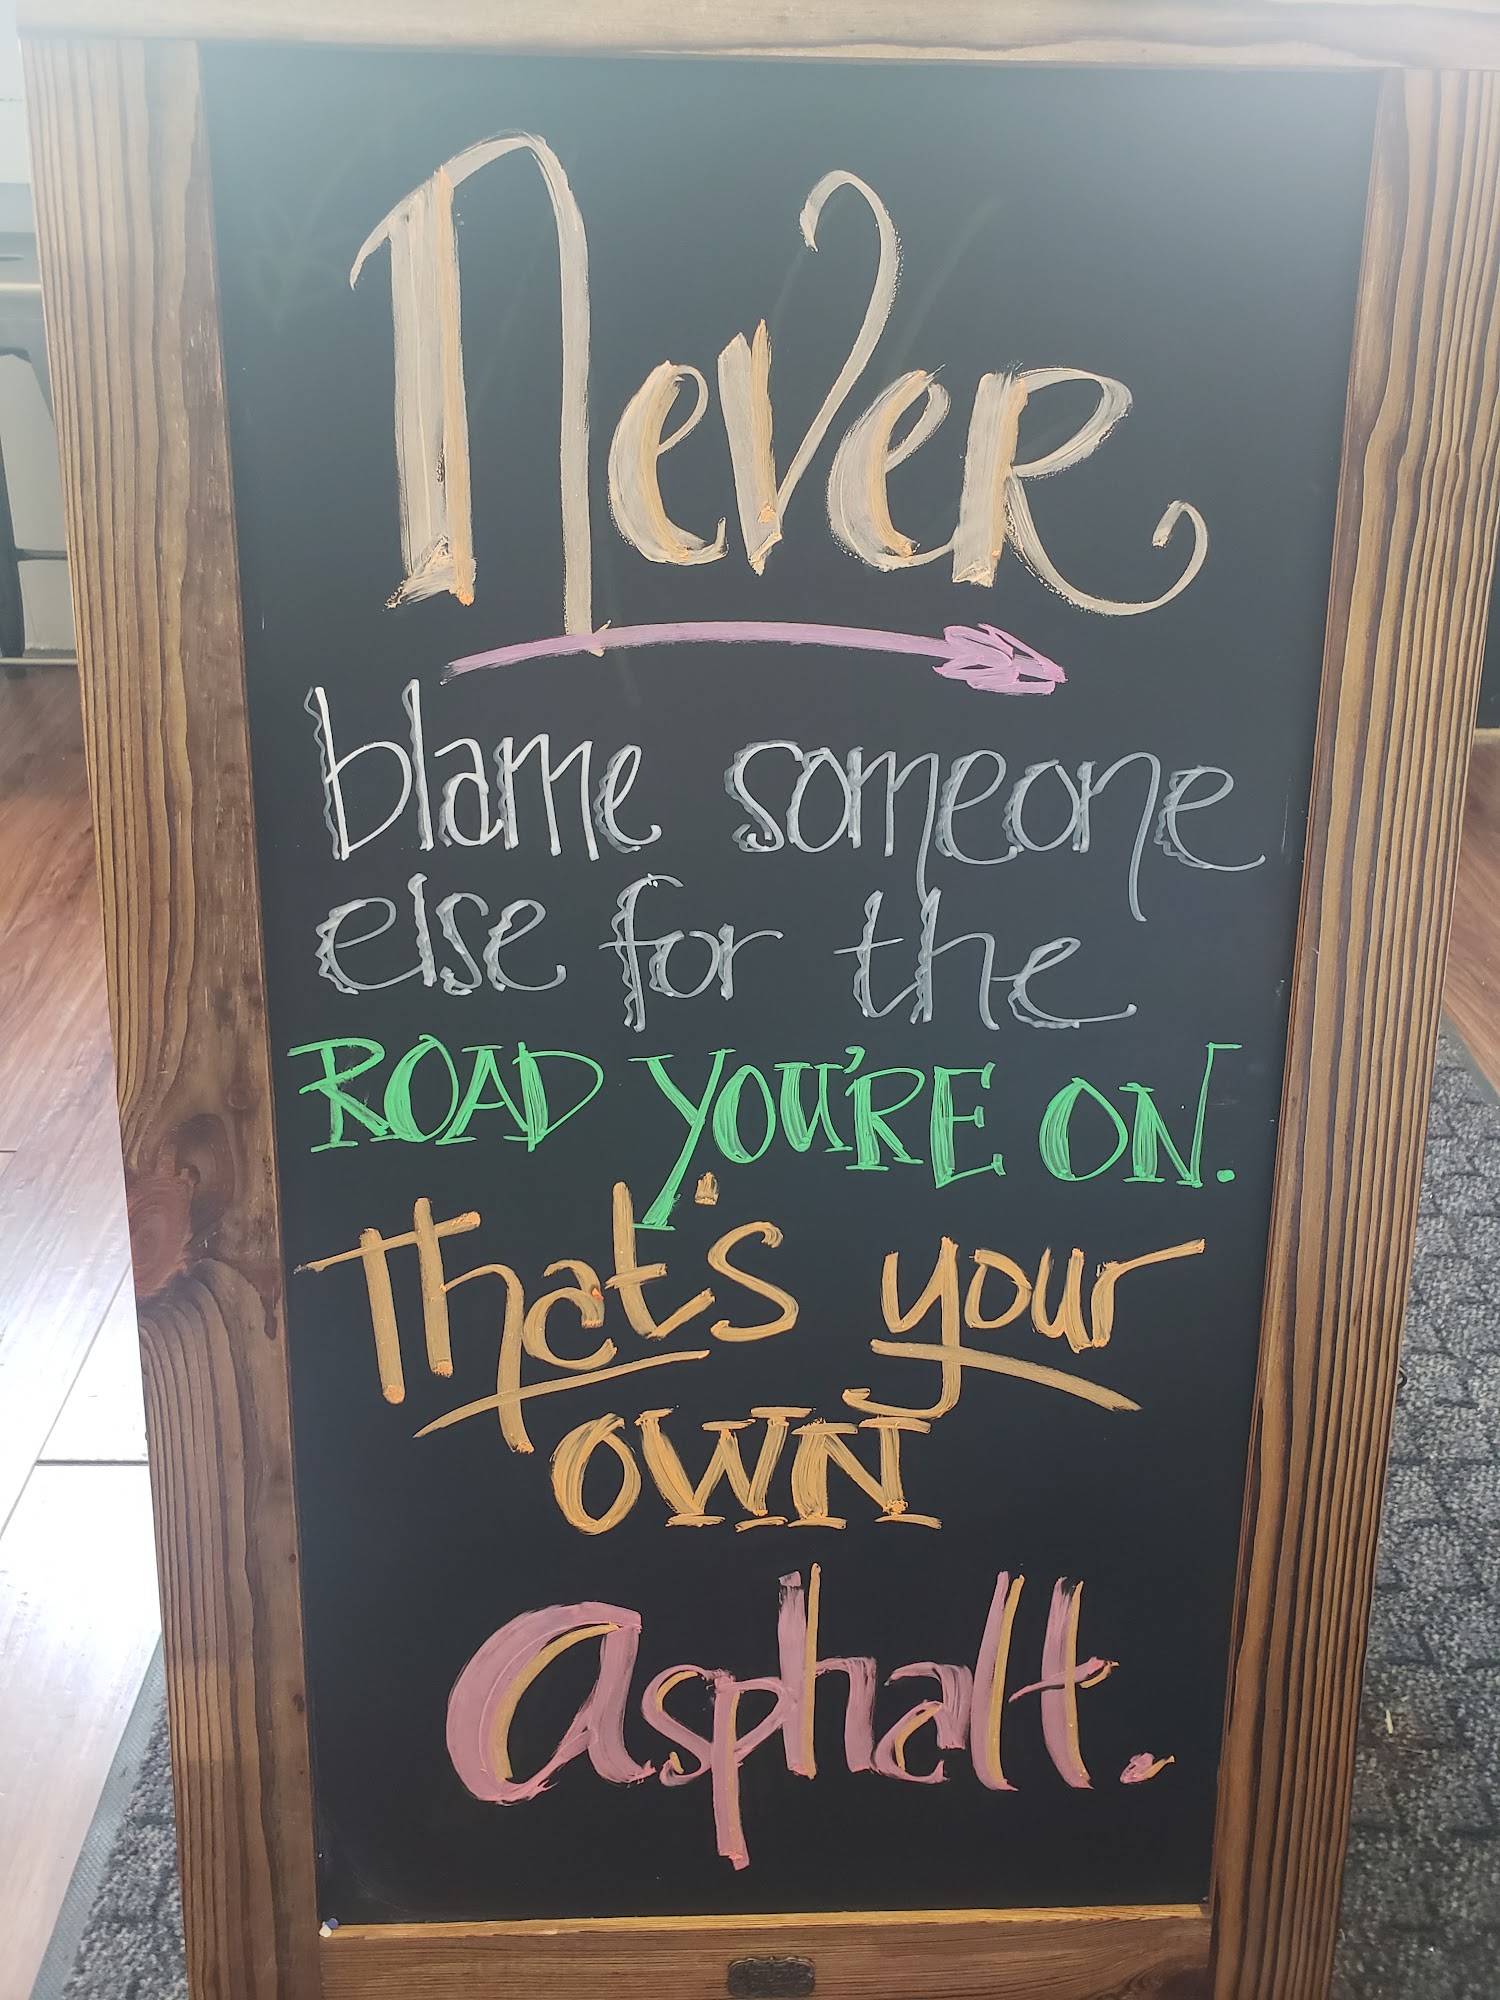 Never
blame someone
else for the
ROAD YOU'RE ON.
That's your
OWN
Asphalt.